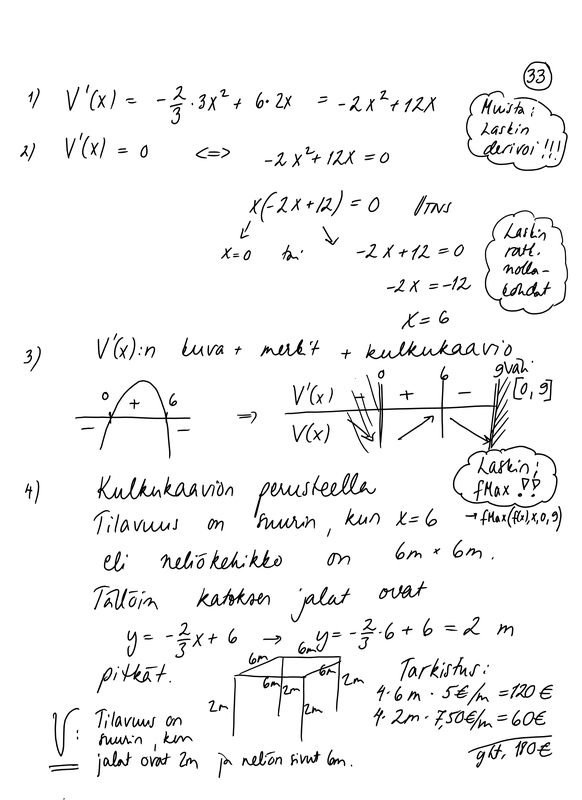 33
1) V'(x) = -2/3 · 3x² + 6·2x = -2x² + 12x
Muista:
Laskin
derivoi!!!
2) V'(x) = 0 <=> -2x² + 12x = 0
x(-2x+12) = 0 ||TNS
x=0 tai -2x+12 = 0
Laskin
ratk.
nolla-
kohdat
-2x = -12
x = 6
3) V'(x):n kuva + merkit + kulkukaavio
0 + 6
- -
=>
0 6 9 väli [0,9]
V'(x) + -
V(x)
Laskin;
fMax !!
→ fMax(f(x),x,0,9)
4) Kulkukaavion perusteella
Tilavuus on suurin, kun x=6
eli neliökehikko on 6m × 6m.
Tällöin katoksen jalat ovat
y = -2/3 x + 6 → y = -2/3 · 6 + 6 = 2 m
pitkät.
6m 6m
6m 6m
2m 2m 2m 2m
Tarkistus:
4·6m · 5€/m = 120€
4·2m · 7,50€/m = 60€
yht. 180€
V: Tilavuus on
suurin, kun
jalat ovat 2m ja neliön sivut 6m.